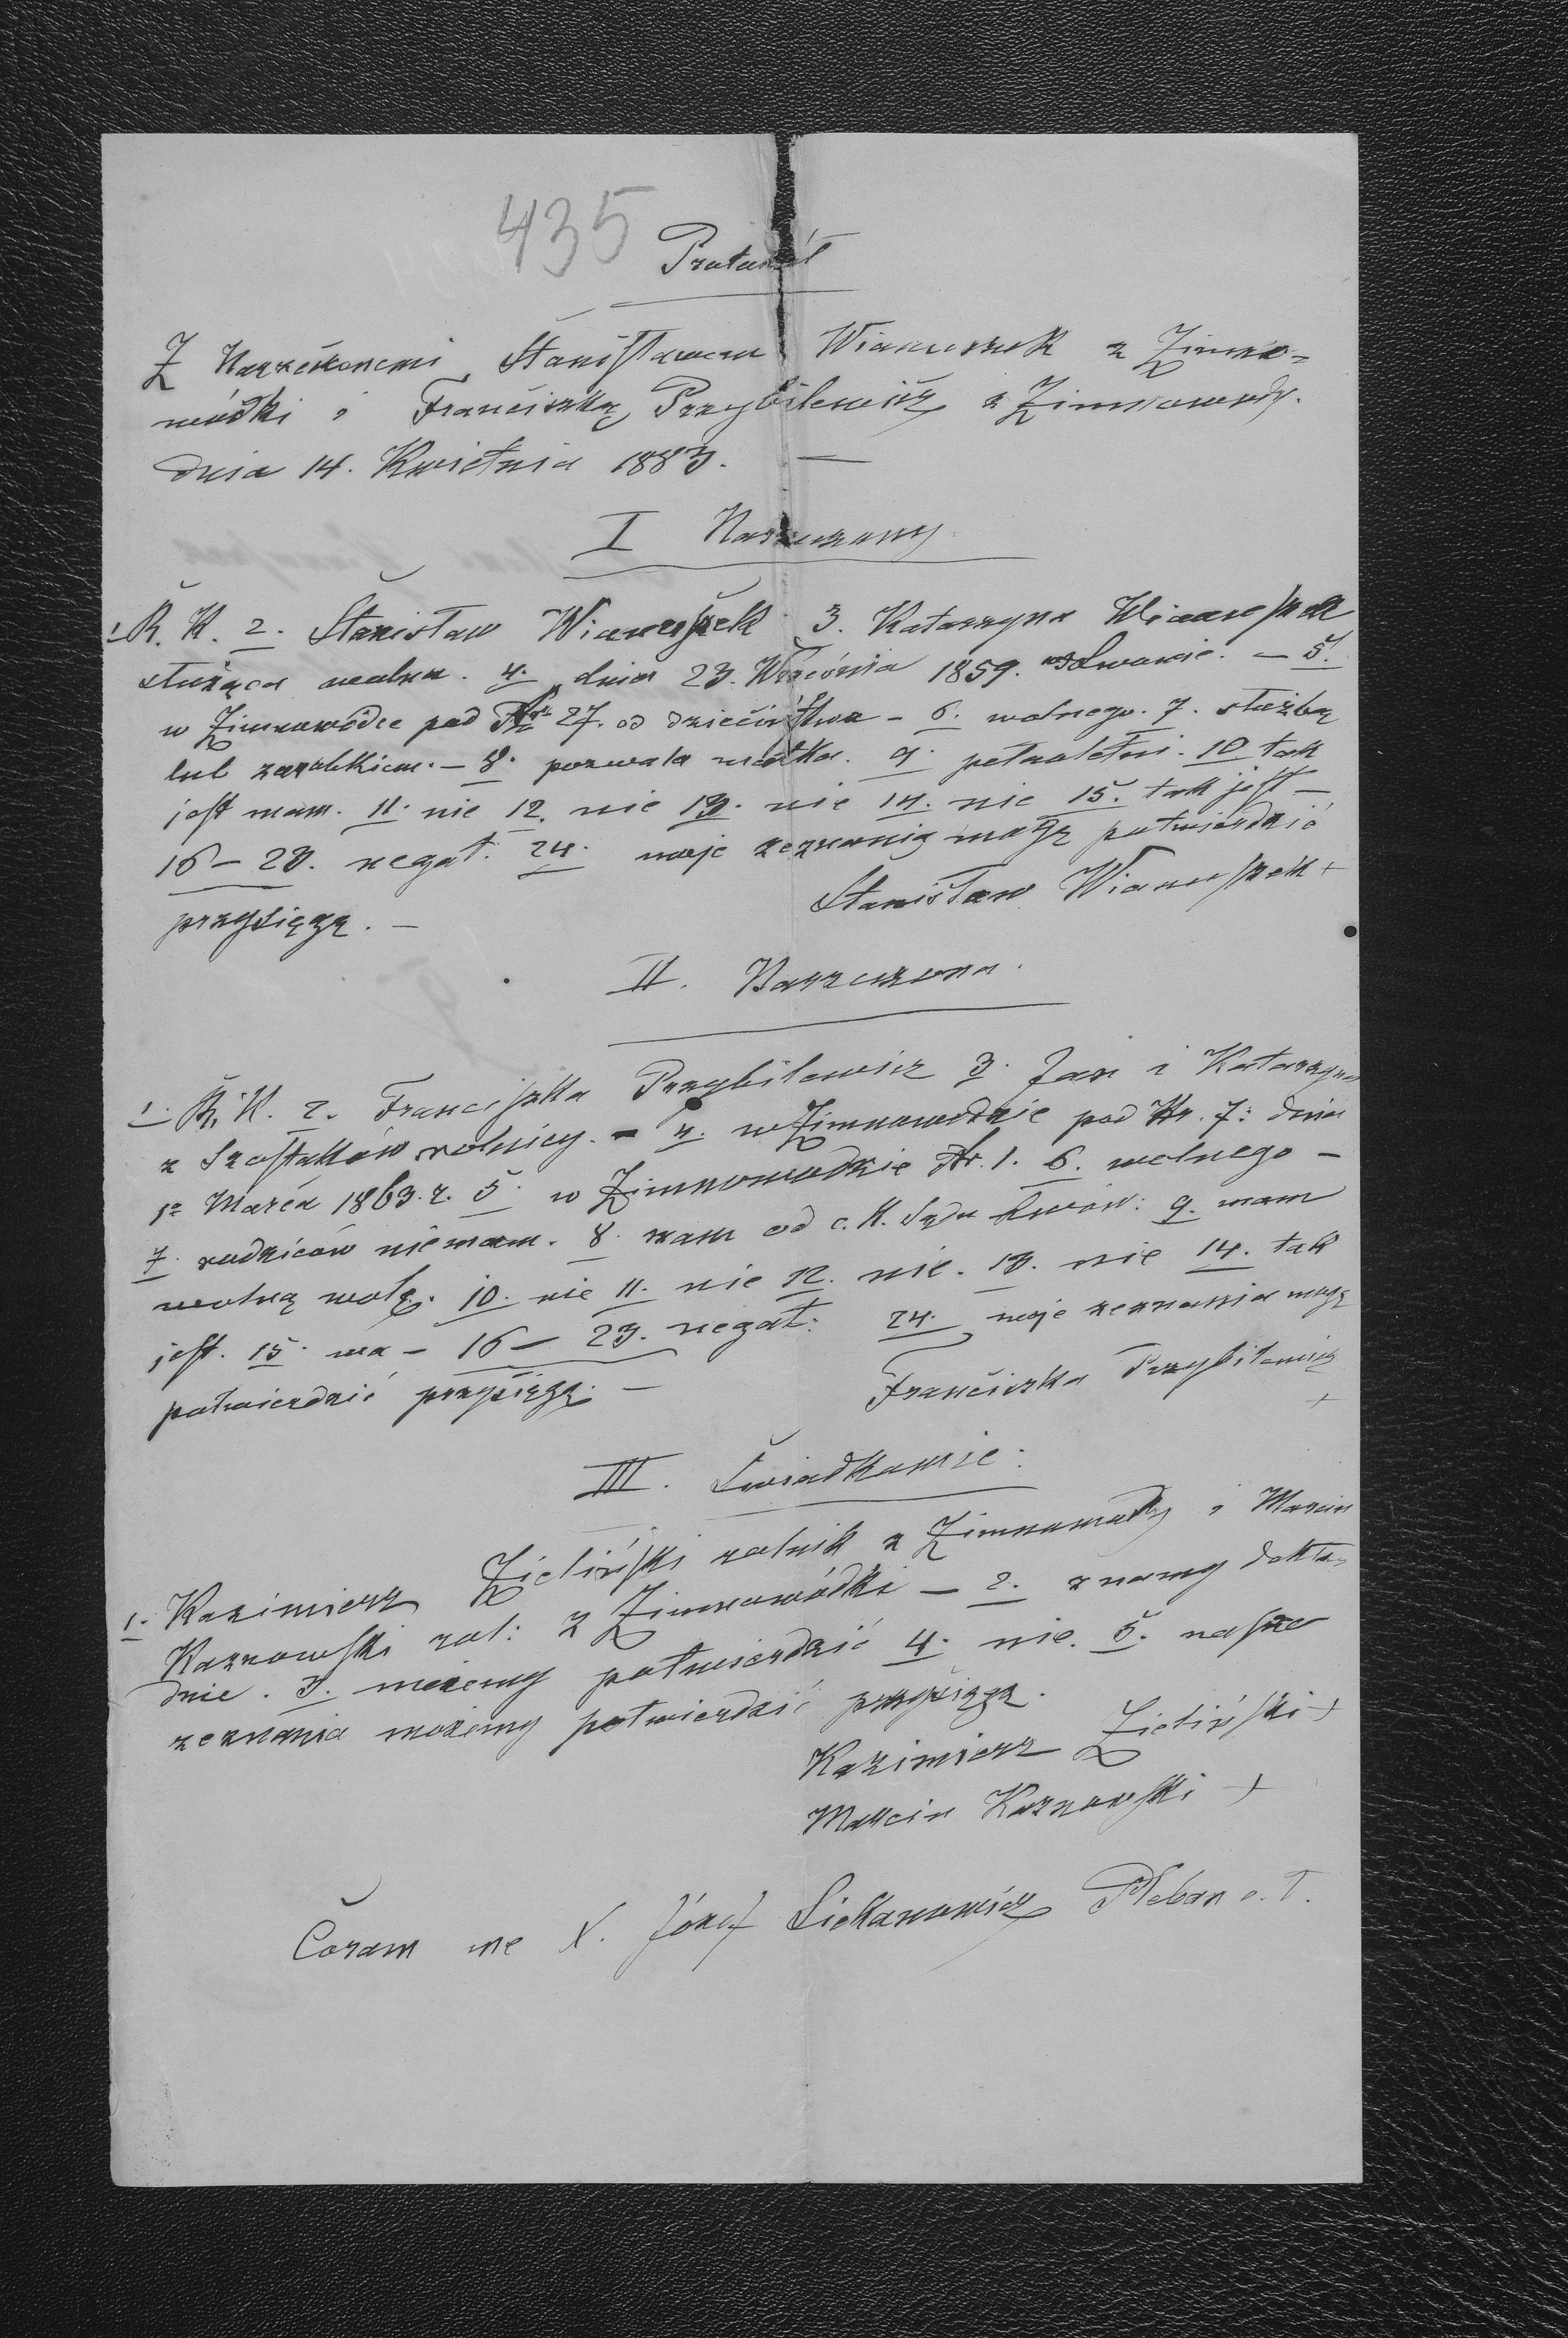 435
Protokół
Z Narzeczonemi Stanisławem Wianuszek z Zimno-
wódki i Franciszką Przybilewicz z Zimnowody.
dnia 14. Kwietnia 1883. —
I Narzeczony
1 R. K. 2. Stanisław Wianuszek 3. Katarzyna Wianuszek
służąca wolna. 4. dnia 23. Września 1859. we Lwowie. — 5.
w Zimnowódce pod Nr 27. od dzieciństwa – 6. wolnego. 7. służbą
lub zarobkiem. – 8. pozwala matka. 9. pełnoletni. 10 tak
jest mam. 11. nie 12. nie 13. nie 14. nie 15. tak jest –
16 – 23. negat: 24. moje zeznania mogę potwierdzić
przysięgą. –
Stanisław Wianuszek +
II. Narzeczona.
1. R. K. 2. Franciszka Przybilewicz 3. Jan i Katarzyna
z Szostaków rolnicy. – 4. w Zimnowodzie pod Nr. 7: dnia
12 Marca 1863. r. 5. w Zimnowodzie Nr. 1. 6. wolnego –
7. rodziców niemam. 8. mam od c. K. Sądu Lwów: 9. mam
wolną wolę. 10. nie 11. nie 12. nie. 13. nie 14. tak
jest. 15. ma – 16 – 23. negat: 24. moje zeznania mogę
potwierdzić przysięgą. –
Franciszka Przybilewicz
+
III. Świadkowie:
1. Kazimierz Zieliński rolnik z Zimnowody i Marcin
Kaznowski rol: z Zimnowódki – 2. znamy dokła-
dnie. 3. możemy potwierdzić 4. nie. 5. nasze
zeznania możemy potwierdzić przysięgą.
Kazimierz Zieliński +
Marcin Kaznowski +
Coram me X. Józef Pleban